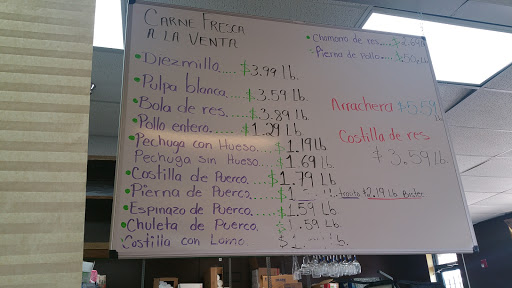 CARNE FRESCA
A LA VENTA
Diezmillo..... $3.99 lb.
Pulpa blanca. $3.59 lb.
Bola de res. $3.89 lb.
Pollo entero. $1.29 lb.
Pechuga con Hueso. $1.19 lb
Pechuga sin Hueso... $1.69 lb.
Costilla de Puerco. $1.79 Lb
Pierna de Puerco. $1 $2.19 Lb
Espinazo de Puerco... $1.59 Lb
Chuleta de Puerco. $1.59 Lb
Costilla con Lomo. $ lb.
Chamorro de res.
Pierna de Pollo.
Arrachera $5.59
Costilla de res
$3.59 lb.